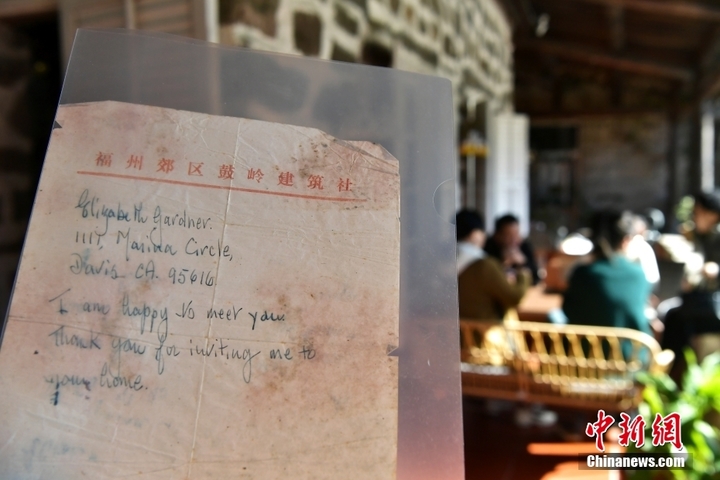 福州郊区鼓岭建筑社
Elizabeth Gardner.
1117, Marina Circle,
Davis CA. 95616
I am happy to meet you.
Thank you for inviting me to
your home.
中新網
Chinanews.com